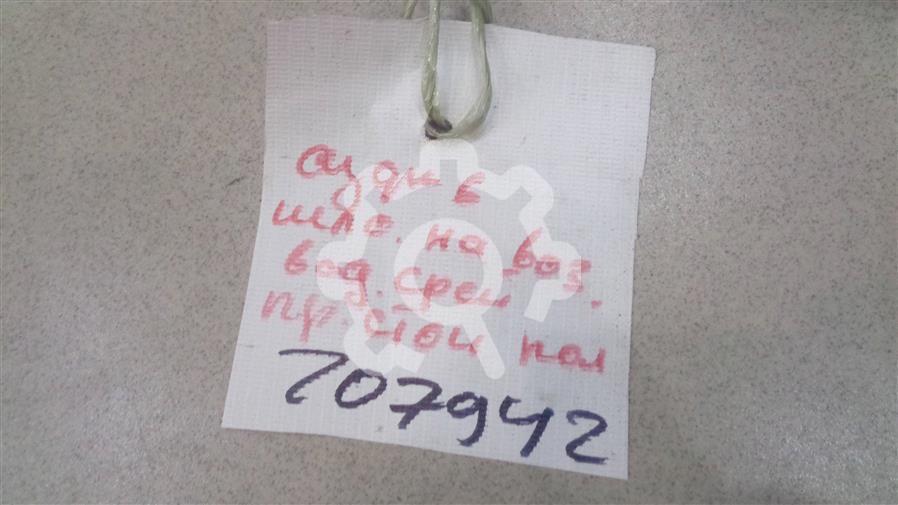 ауди в
шло. на воз.
вод. среи
пр. стои пол
207942